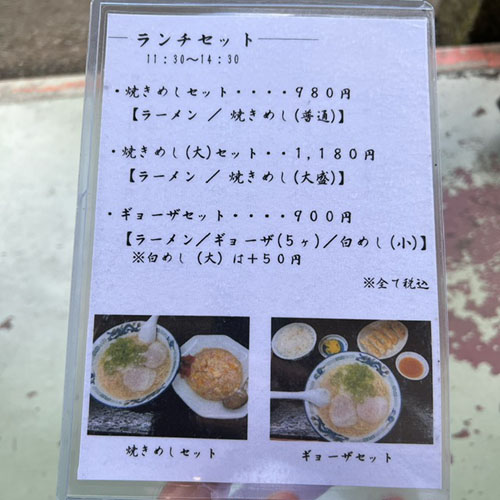 ランチセット
11:30〜14:30
・焼きめしセット・・・・980円
【ラーメン / 焼きめし(普通)】
・焼きめし(大)セット・・1,180円
【ラーメン / 焼きめし(大盛)】
・ギョーザセット・・・・900円
【ラーメン/ギョーザ(5ヶ)/白めし(小)】
※白めし (大) は+50円
※全て税込
焼きめしセット
ギョーザセット